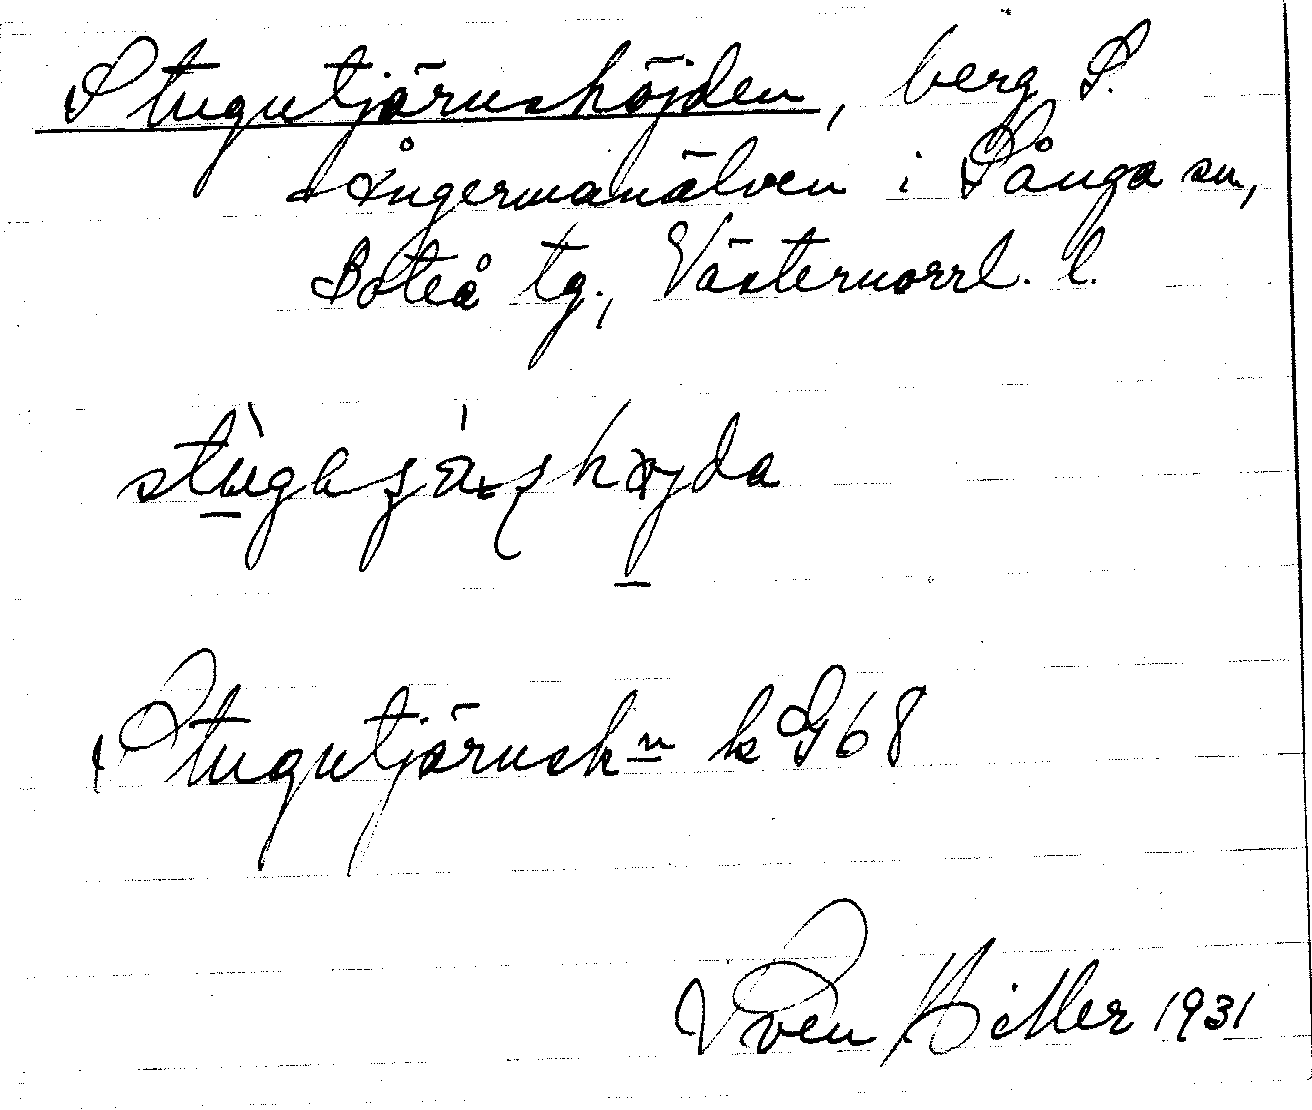 Stugutjärnshöjden, berg S.
Ångermanälven i Sånga sn,
Boteå tg., Västernorrl. l.
Stugutjärnshn k G68
Sven Hiller 1931